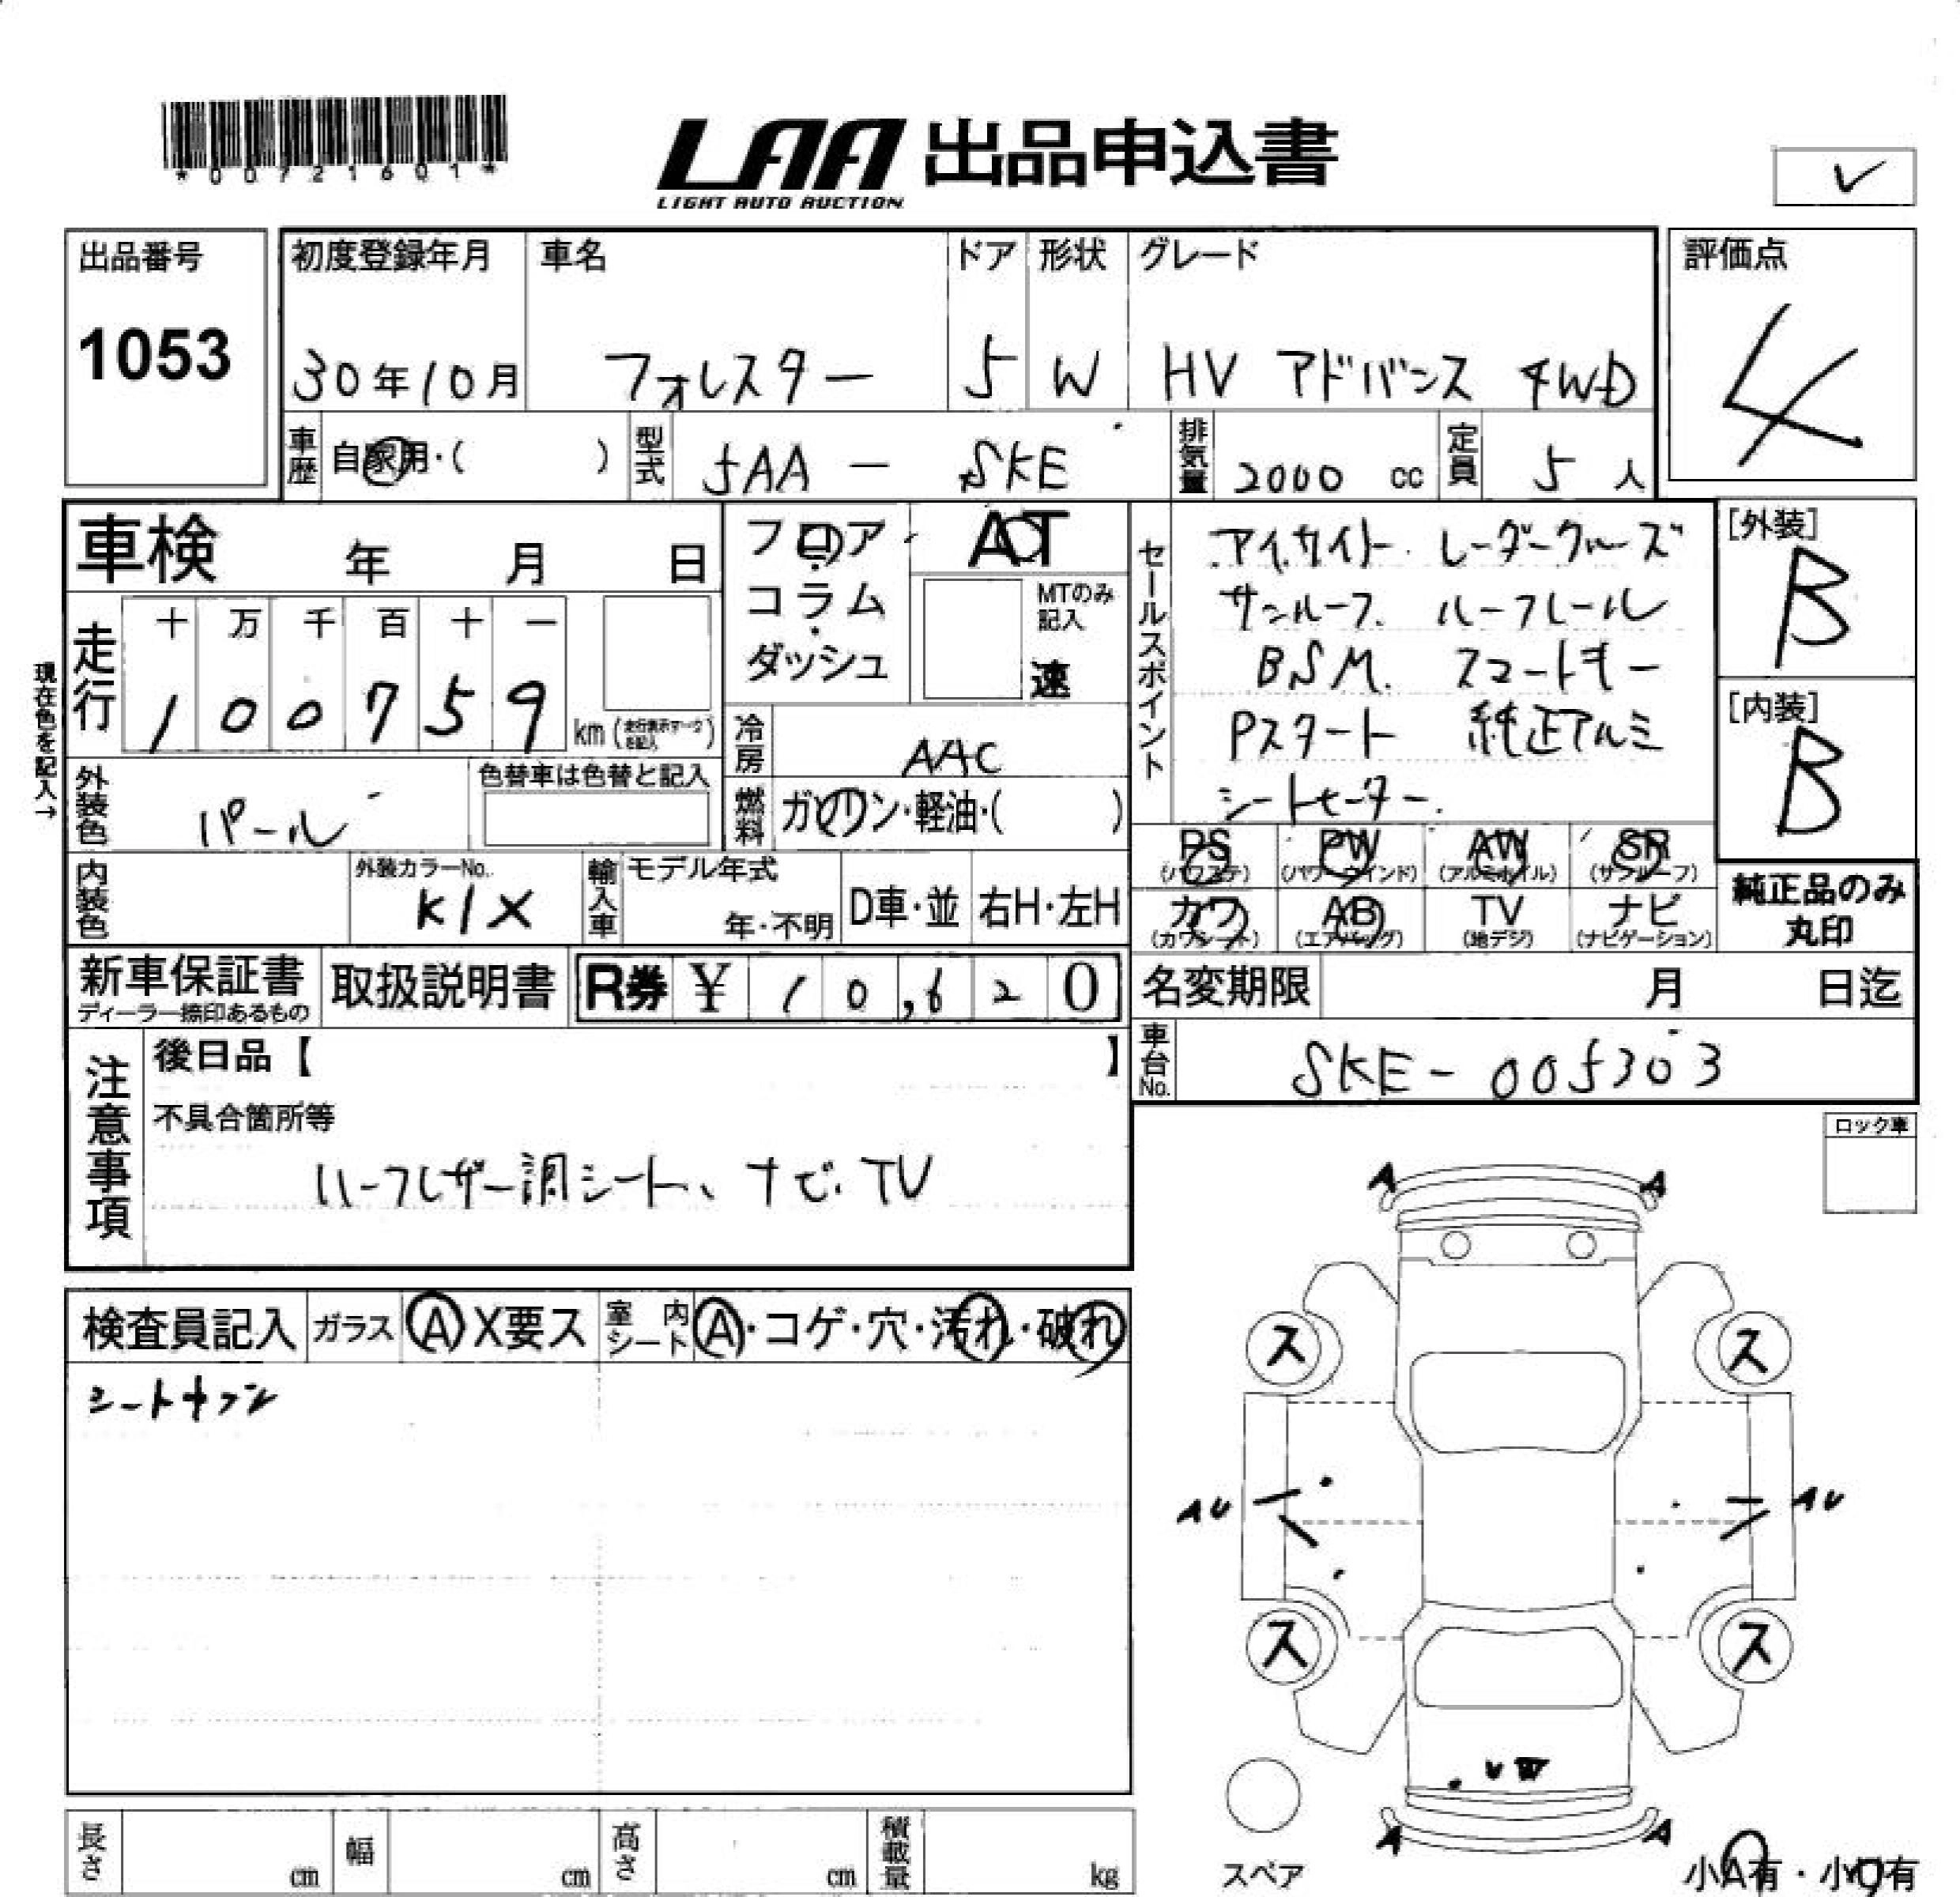 *00721601*
LAA 出品申込書
LIGHT AUTO AUCTION
✓
出品番号
1053
初度登録年月 車名 ドア 形状 グレード
30年10月 フォレスター 5 W HV アドバンス 4WD
評価点
4
車歴 自家用・( ) 型式 5AA - SKE 排気量 2000 cc 定員 5 人
車検 年 月 日
フロア・コラム・ダッシュ
AT
MTのみ記入
速
セールスポイント
アイサイト. レーダークルーズ
サンルーフ. ルーフレール
BSM. スマートキー
Pスタート 純正アルミ
シートヒーター.
[外装]
B
[内装]
B
現在色を記入→
走行
十 万 千 百 十 一
1 0 0 7 5 9 km (走行表示マークを記入)
冷房 AAC
外装色 パール
色替車は色替と記入
燃料 ガソリン・軽油・( )
PS (パワステ) PW (パワーウインド) AW (アルミホイル) SR (サンルーフ)
カワ (カワシート) AB (エアバッグ) TV (地デジ) ナビ (ナビゲーション)
純正品のみ
丸印
内装色
外装カラーNo.
K1X
輸入車 モデル年式
年・不明 D車・並 右H・左H
新車保証書
ディーラー捺印あるもの
取扱説明書 R券 ¥ 10,620
名変期限 月 日迄
車台No. SKE-005303
注意事項
後日品【 】
不具合箇所等
ハーフレザー調シート、ナビ.TV
ロック車
検査員記入 ガラス A X要ス 室内シート A・コゲ・穴・汚れ・破れ
A A
ス ス
AU AU
ス ス
A A
スペア
小A有・小U有
長さ cm 幅 cm 高さ cm 積載量 kg